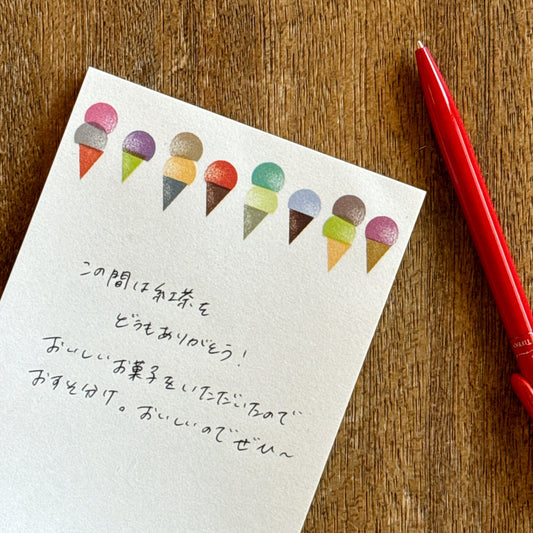 この間は紅茶を
どうもありがとう！
おいしいお菓子をいただいたので
おすそ分け。おいしいのでぜひ〜